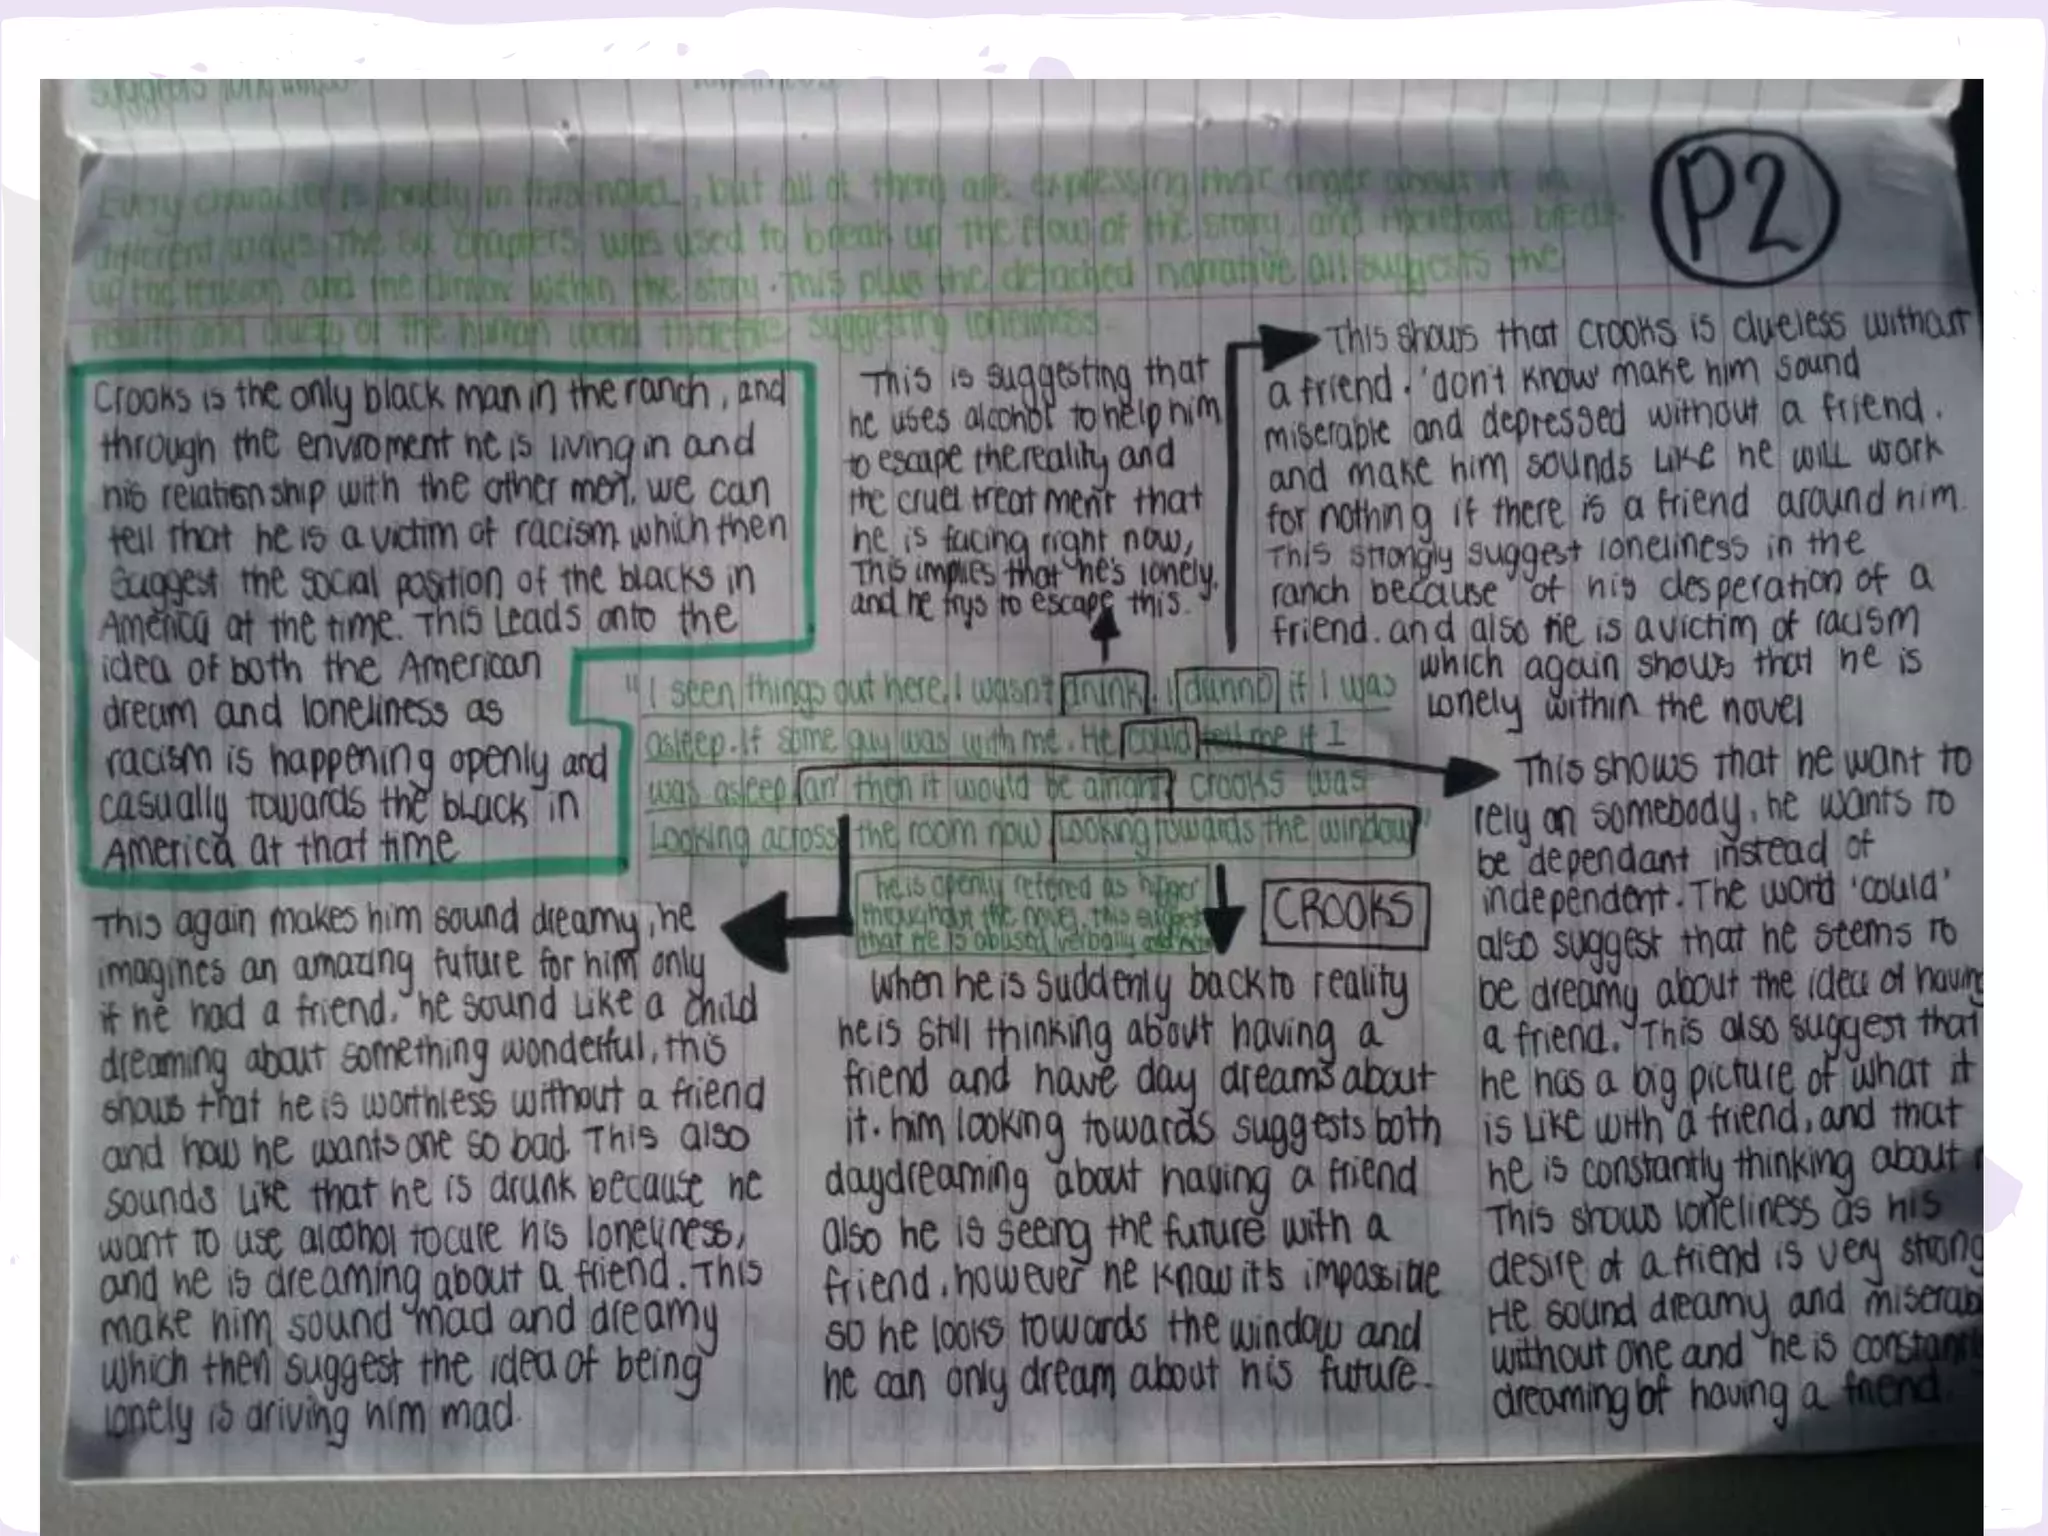 P2
Every character is lonely in this novel, but all of them are expressing their anger about it in
different ways. The six chapters was used to break up the flow of the story, and therefore break
up the tension and the climax within the story. This plus the detached narrative all suggests the
reality and of the human world therefore suggesting loneliness.
Crooks is the only black man in the ranch, and
through the enviroment he is living in and
his relationship with the other men, we can
tell that he is a victim of racism which then
suggest the social position of the blacks in
America at the time. This leads onto the
idea of both the American
dream and loneliness as
racism is happening openly and
casually towards the black in
America at that time
This is suggesting that
he uses alcohol to help him
to escape the reality and
the cruel treatment that
he is facing right now,
This implies that he's lonely,
and he trys to escape this.
This shows that crooks is clueless without
a friend. 'don't know' make him sound
miserable and depressed without a friend.
and make him sounds like he will work
for nothing if there is a friend around him.
This strongly suggest loneliness in the
ranch because of his desperation of a
friend. and also he is a victim of racism
which again shows that he is
lonely within the novel
"I seen things out here. I wasn't drunk. I dunno if I was
asleep. If some guy was with me. He could tell me if I
was asleep an' then it would be alright' crooks was
Looking across the room now looking towards the window"
he is openly refered as 'nigger'
throughout the novel, this suggest
that he is abused verbally
CROOKS
This again makes him sound dreamy, he
imagines an amazing future for him only
if he had a friend, he sound like a child
dreaming about something wonderful, this
shows that he is worthless without a friend
and how he wants one so bad. This also
sounds like that he is drunk because he
want to use alcohol to cure his loneliness,
and he is dreaming about a friend. This
make him sound mad and dreamy
which then suggest the idea of being
lonely is driving him mad.
When he is suddenly back to reality
he is still thinking about having a
friend and have day dreams about
it. him looking towards suggests both
daydreaming about having a friend
also he is seeing the future with a
friend, however he know it's impossible
so he looks towards the window and
he can only dream about his future.
This shows that he want to
rely on somebody, he wants to
be dependant instead of
independent. The word 'could'
also suggest that he seems to
be dreamy about the idea of having
a friend. This also suggest that
he has a big picture of what it
is like with a friend, and that
he is constantly thinking about
This shows loneliness as his
desire of a friend is very strong
He sound dreamy and miserab
without one and he is constantl
dreaming of having a friend.